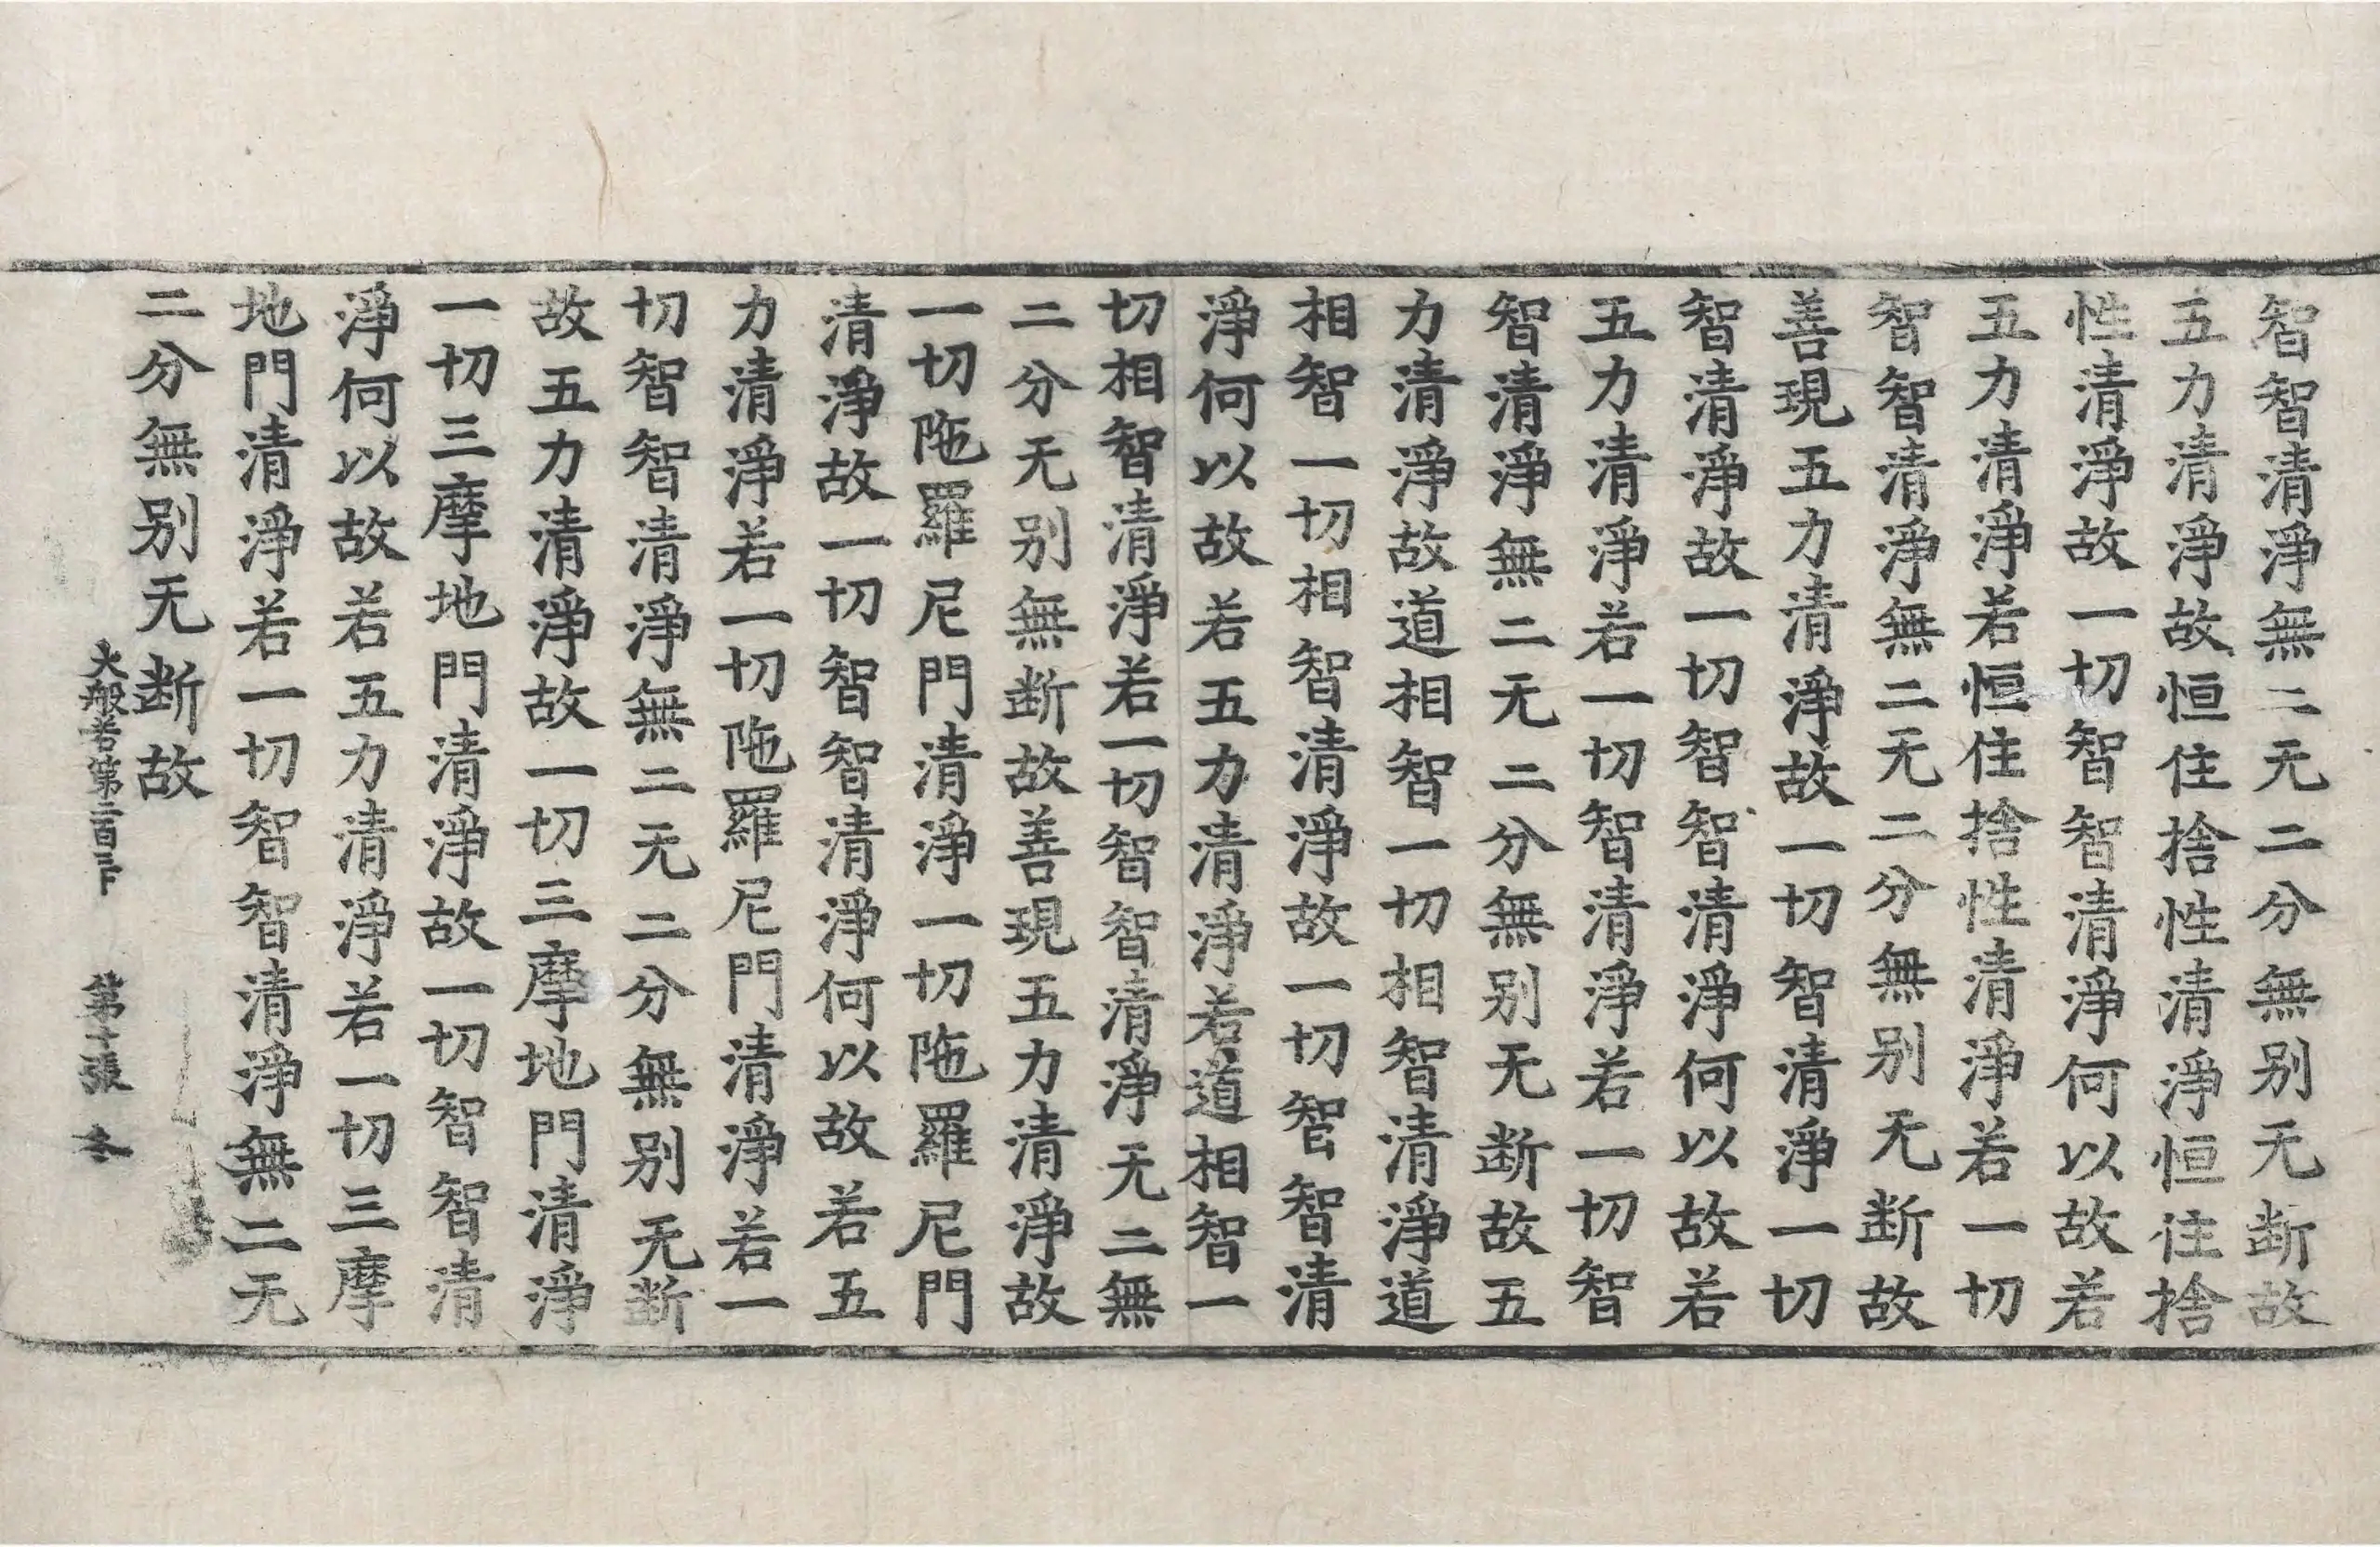 智智清淨無二无二分無别无断故
五力清淨故恒住捨性清淨恒住捨
性清淨故一切智智清淨何以故若
五力清淨若恒住捨性清淨若一切
智智清淨無二无二分無别无断故
善現五力清淨故一切智清淨一切
智清淨故一切智智清淨何以故若
五力清淨若一切智清淨若一切智
智清淨無二无二分無别无断故五
力清淨故道相智一切相智清淨道
相智一切相智清淨故一切智智清
淨何以故若五力清淨若道相智一
切相智清淨若一切智智清淨无二無
二分无别無断故善現五力清淨故
一切陁羅尼門清淨一切陁羅尼門
清淨故一切智智清淨何以故若五
力清淨若一切陁羅尼門清淨若一
切智智清淨無二无二分無别无断
故五力清淨故一切三摩地門清淨
一切三摩地門清淨故一切智智清
淨何以故若五力清淨若一切三摩
地門清淨若一切智智清淨無二无
二分無别无断故
大般若第二百三下 第十張 冬